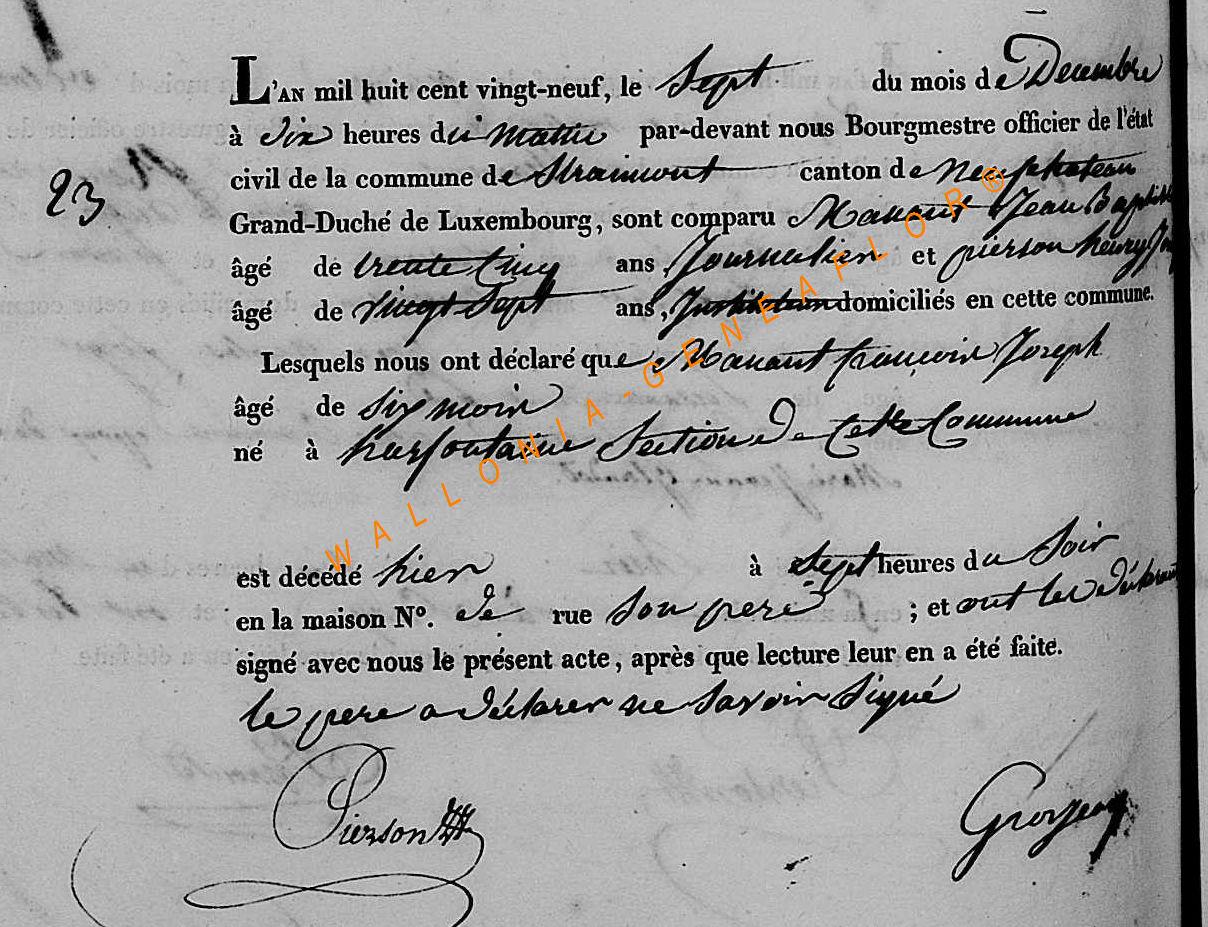 L'AN mil huit cent vingt-neuf, le Sept du mois de Decembre
à dix heures du matin par-devant nous Bourgmestre officier de l'état
civil de la commune de Straimont canton de Neufchateau
23
Grand-Duché de Luxembourg, sont comparu Manant Jean Baptiste
âgé de trente Cinq ans Journalien et pierson henry
âgé de vingt Sept ans, Instituteur domiciliés en cette commune.
Lesquels nous ont déclaré que Manant françois Joseph
âgé de Six mois
né à harfontaine Section de Cette Commune
WALLONIA-GENEAFLOR®
est décédé hier à Sept heures du Soir
en la maison N°. de rue Son pere ; et ont les déclarant
signé avec nous le présent acte, après que lecture leur en a été faite.
le pere a déclarer ne Savoir Signé
Pierson